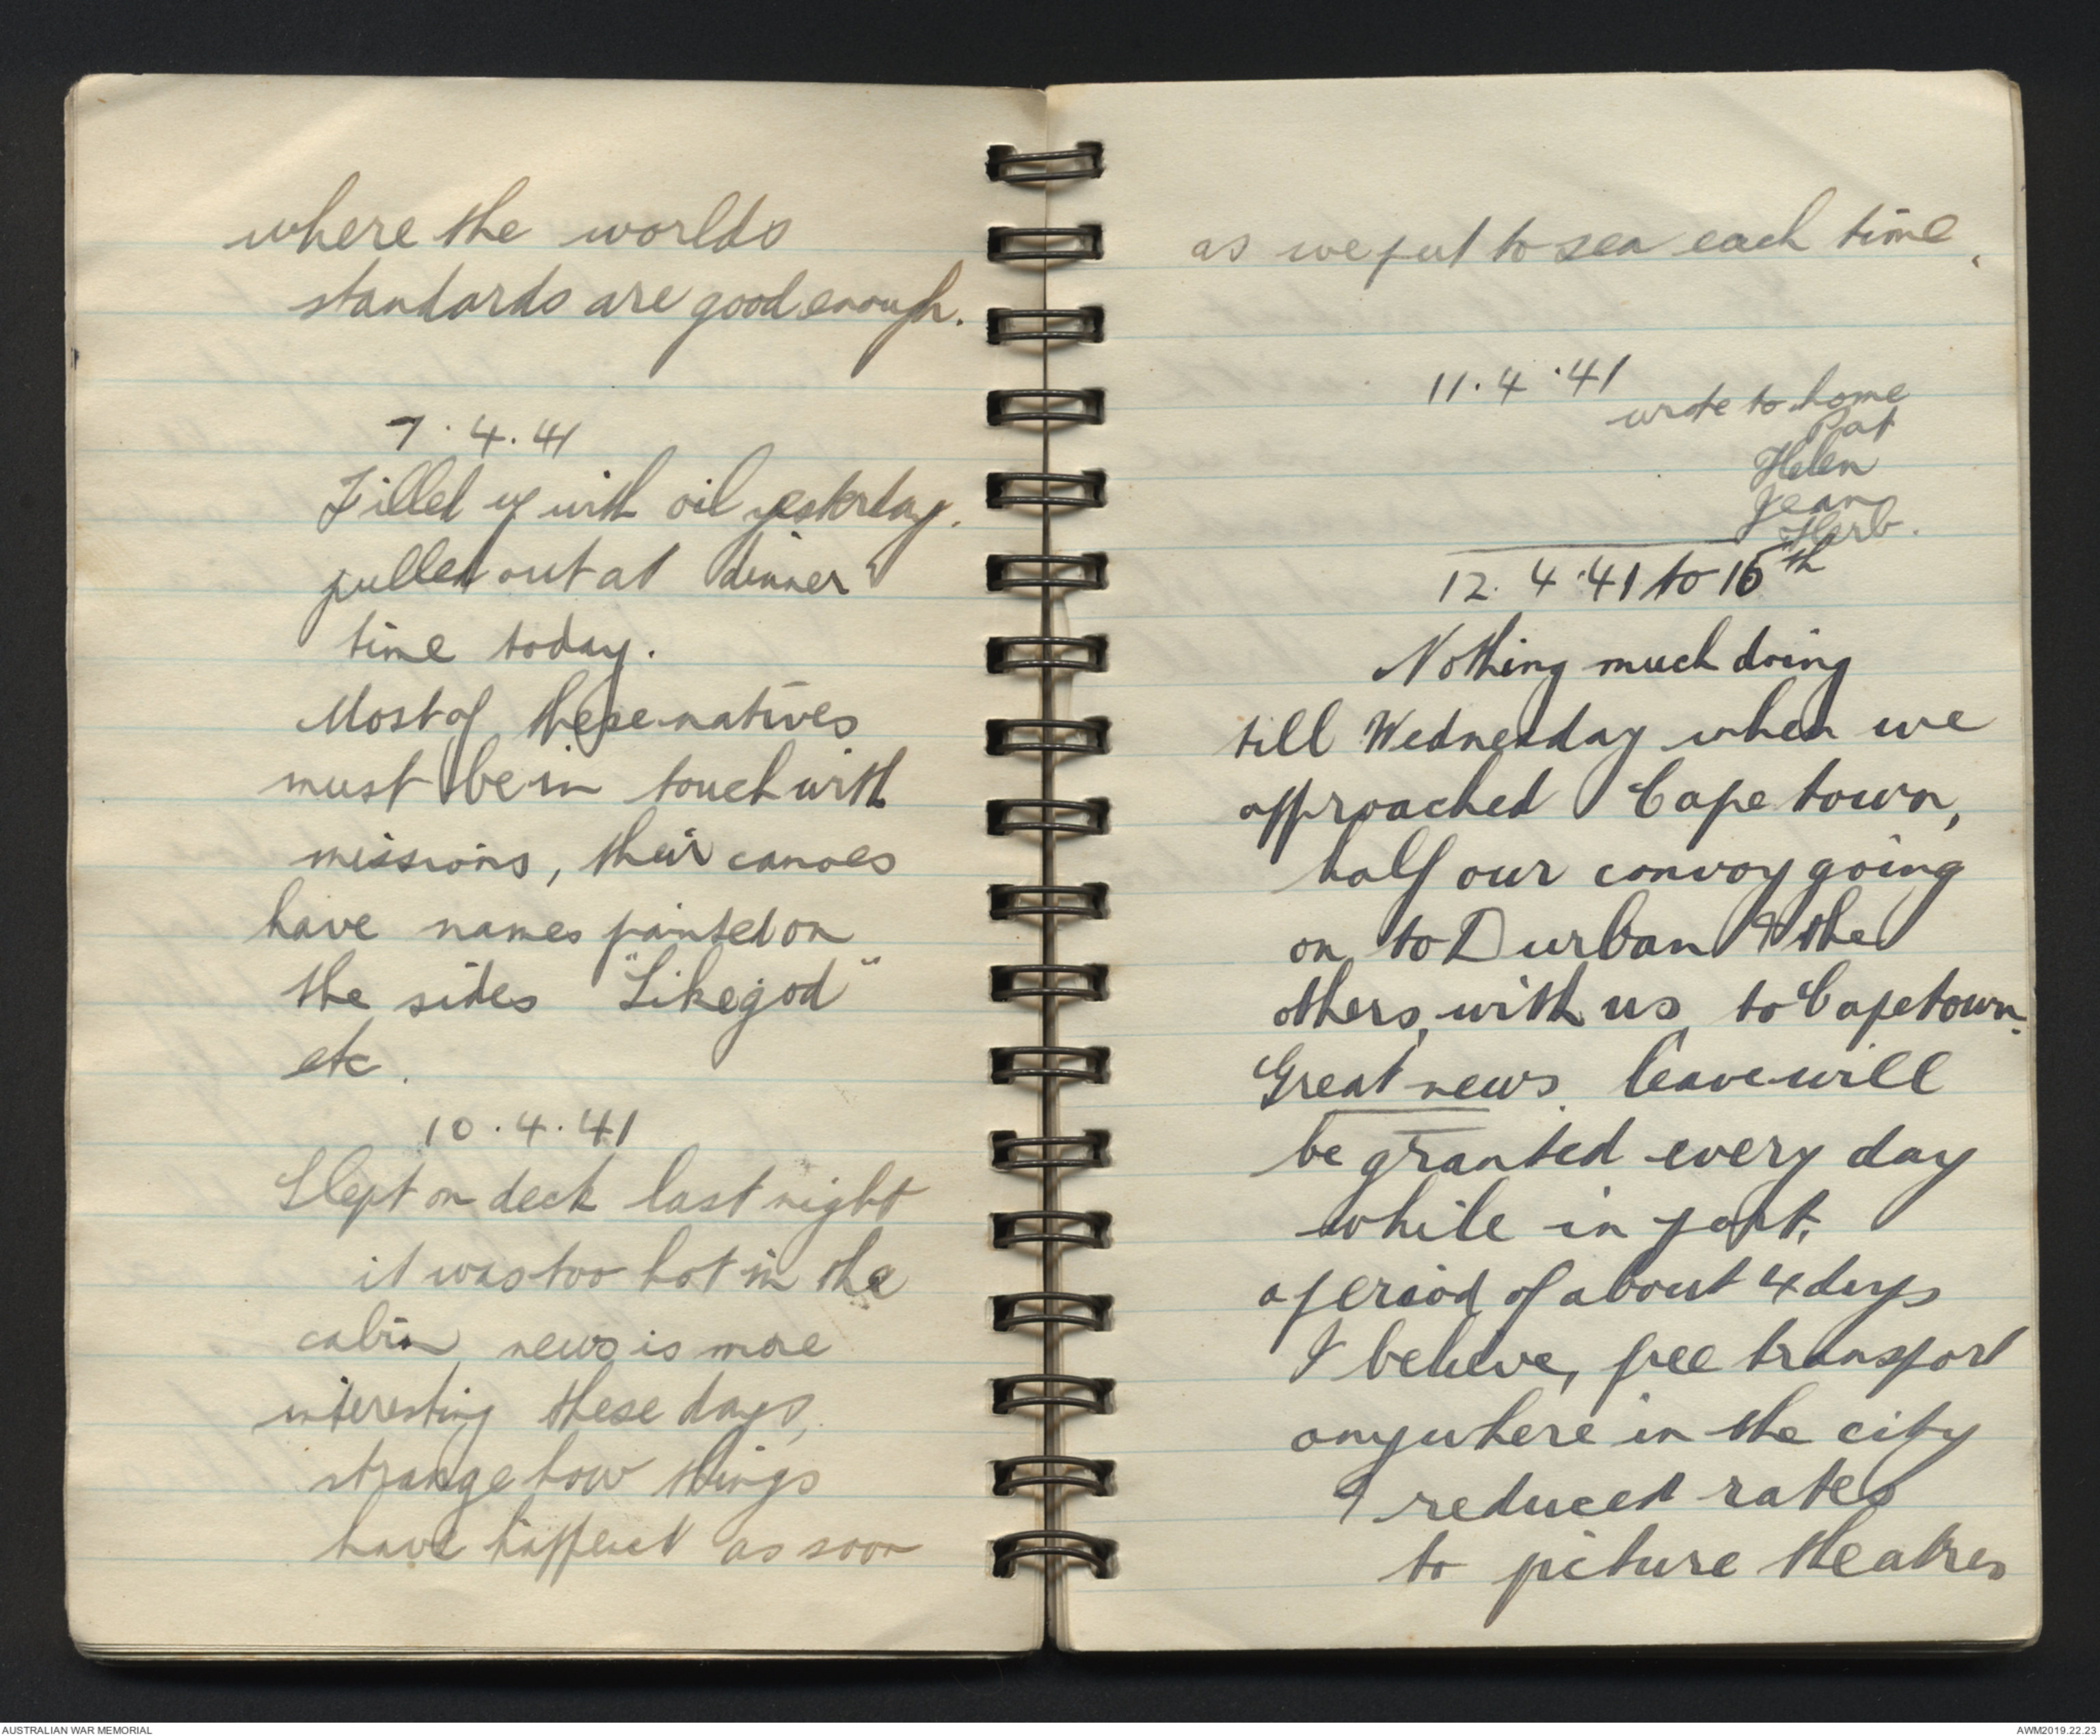 where the worlds
standards are good enough.
7.4.41
Filled up with oil yesterday.
pulled out at dinner
time today.
Most of these natives
must be in touch with
missions, their canoes
have names painted on
the sides "Likegod"
etc.
10.4.41
Slept on deck last night
it was too hot in the
cabin, news is more
interesting these days,
strange how things
have happened as soon
as we put to sea each time.
11.4.41
wrote to home
Pat
Helen
Jean
Herb.
12.4.41 to 16th
Nothing much doing
till Wednesday when we
approached Cape town,
half our convoy going
on to Durban & the
others, with us, to Capetown.
Great news. leave will
be granted every day
while in port,
a period of about 4 days
I believe, free transport
anywhere in the city
& reduced rates
to picture theatres
AUSTRALIAN WAR MEMORIAL
AWM2019.22.23